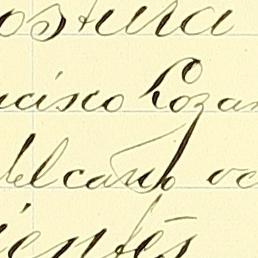 ostura
ncisco Lozan
delcaño ve
ientes